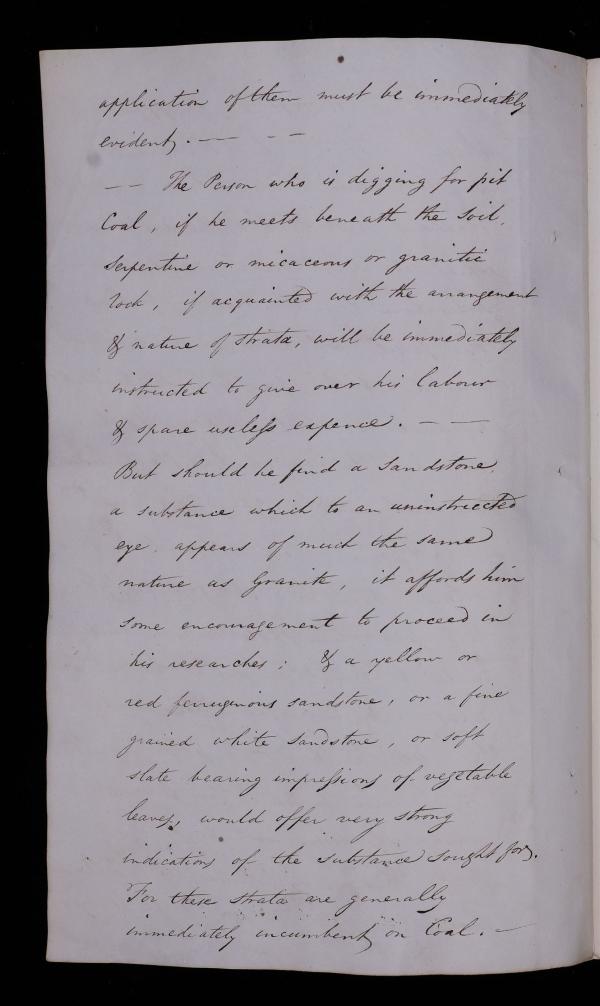 application of them must be immediately
evident. — — —
— — The Person who is digging for pit
Coal, if he meets beneath the soil,
Serpentine or micaceous or granitic
rock, if acquainted with the arrangement
& nature of strata, will be immediately
instructed to give over his labour
& spare useless expence. — —
But should he find a Sandstone,
a substance which to an uninstructed
eye appears of much the same
nature as Granite, it affords him
some encouragement to proceed in
his researches; & a yellow or
red ferruginous sandstone, or a fine
grained white Sandstone, or soft
slate bearing impressions of vegetable
leaves, would offer very strong
indications of the substance sought for.
For these strata are generally
immediately incumbent on Coal. —